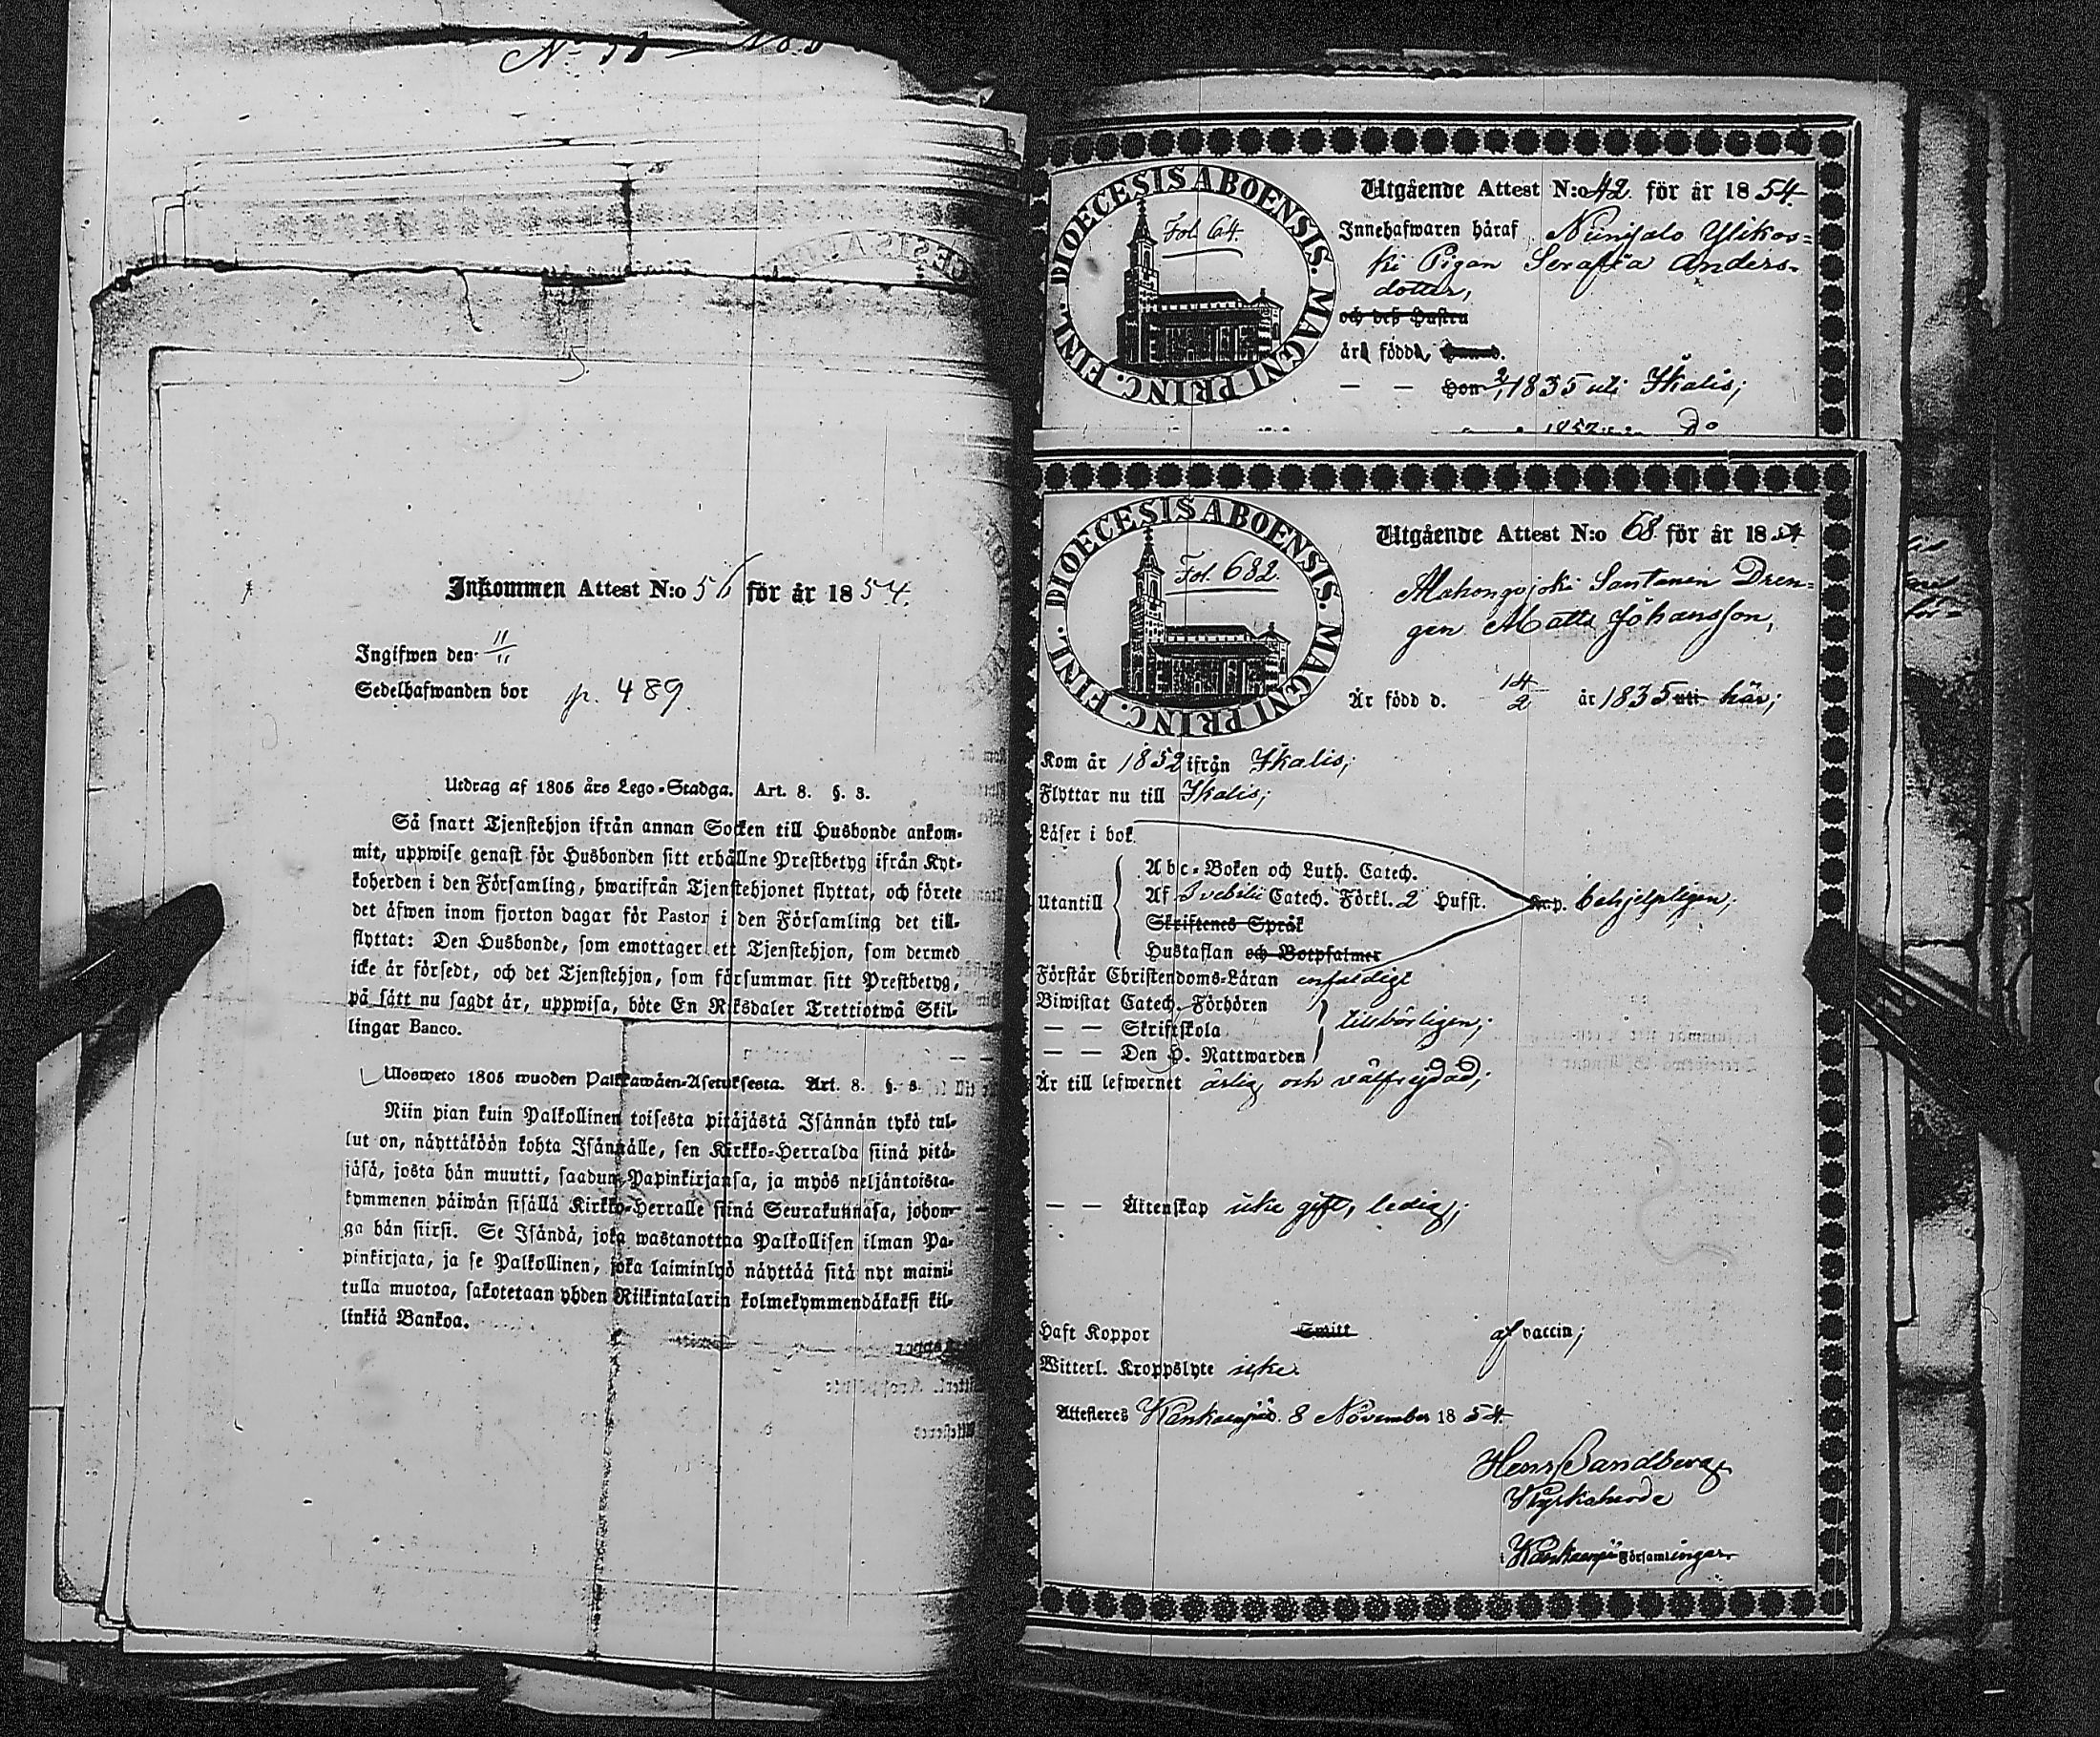 Inkommen Attest N:o 56 för år 1854.
Ingifwen den 11/11
Sedelhafwanden bor p. 489.
Utdrag af 1805 års Lego-Stadga. Art. 8. §. 3.
Så snart Tjenstehjon ifrån annan Socken till Husbonde ankom-
mit, uppwise genast för Husbonden sitt erhållne Prestbetyg ifrån Kyr-
koherden i den Församling, hwarifrån Tjenstehjonet flyttat, och förete
det äfwen inom fjorton dagar för Pastor i den Församling det till-
flyttat: Den Husbonde, som emottager ett Tjenstehjon, som dermed
icke är försedt, och det Tjenstehjon, som försummar sitt Prestbetyg,
på sätt nu sagdt är, uppwisa, böte En Riksdaler Trettiotwå Skil-
lingar Banco.
Ulosweto 1805 wuoden Palkkawäen-Asetuksesta. Art. 8. §. 3.
Niin pian kuin Palkollinen toisesta pitäjästä Isännän tykö tul-
lut on, näyttäköön kohta Isännälle, sen Kirkko-Herralda siinä pitä-
jäsä, josta hän muutti, saadun Papinkirjansa, ja myös neljäntoista-
kymmenen päiwän sisällä Kirkko-Herralle siinä Seurakunnasa, johon-
ga hän siirsi. Se Isändä, joka wastanottaa Palkollisen ilman Pa-
pinkirjata, ja se Palkollinen, joka laiminlyö näyttää sitä nyt maini-
tulla muotoa, sakotetaan yhden Riikintalarin kolmekymmendäkaksi kil-
linkiä Bankoa.
DIOECESIS ABOENSIS. MAGNI PRINC. FINL.
Fol. 64.
Utgående Attest N:o 42. för år 1854
Innehafwaren häraf Niinisalo Ylikos-
ki Pigan Serafia Anders-
dotter,
och deß Hustru
är född,
— — Hon 2/1 1835 uti Ikalis;
1852 Do
DIOECESIS ABOENSIS. MAGNI PRINC. FINL.
Fol. 682.
Utgående Attest N:o 68 för år 1854
Mahongojoki Santanen Dren-
gen Matts Johansson,
Är född d. 14/2 år 1835 uti här;
Kom år 1852 ifrån Ikalis;
Flyttar nu till Ikalis;
Läser i bok
Abc-Boken och Luth. Catech.
Utantill Af Svebilii Catech. Förkl. 2 Hufst. Kap. behjelpligen;
Skriftenes Språk
Hustaflan och Botpsalmer
Förstår Christendoms-Läran enfaldigt
Biwistat Catech. Förhören
— — Skriftskola tilbörligen;
— — Den H. Nattwarden
Är till lefwernet ärlig och välfrejdad;
— — Äktenskap icke gift, ledig;
Haft Koppor Smitt af vaccin;
Witterl. Kroppslyte icke.
Attesteres Kankaanpää d. 8 November 1854
Henr Sandberg
Kyrkoherde
i Kankaanpää Församlingar